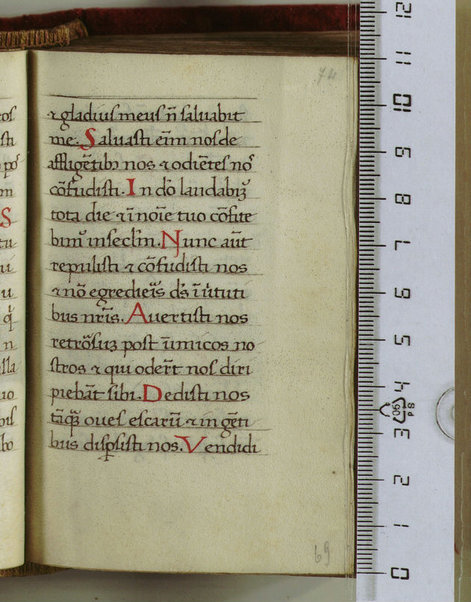 74
⁊ gladius meus ñ saluabit
me. Saluasti eīm nos de
affligētibꝫ nos ⁊ odiētes nos
cōfudisti. In dō laudabimꝰ
tota die ⁊ ī noīe tuo cōfite
bimꝰ in seclm. Nunc aūt
repulisti ⁊ cōfudisti nos
⁊ nō egredieris ds ī uirtuti
bus nr̄is. Auertisti nos
retrorsuꝫ post inimicos no
stros ⁊ qui oder̄t nos diri
piebāt sibi. Dedisti nos
tāqꝫ oues escarū ⁊ in gēti
bus dispersisti nos. Vendidi
69
0 1 2 3 4 5 6 7 8 9 10 11 12
05
PS